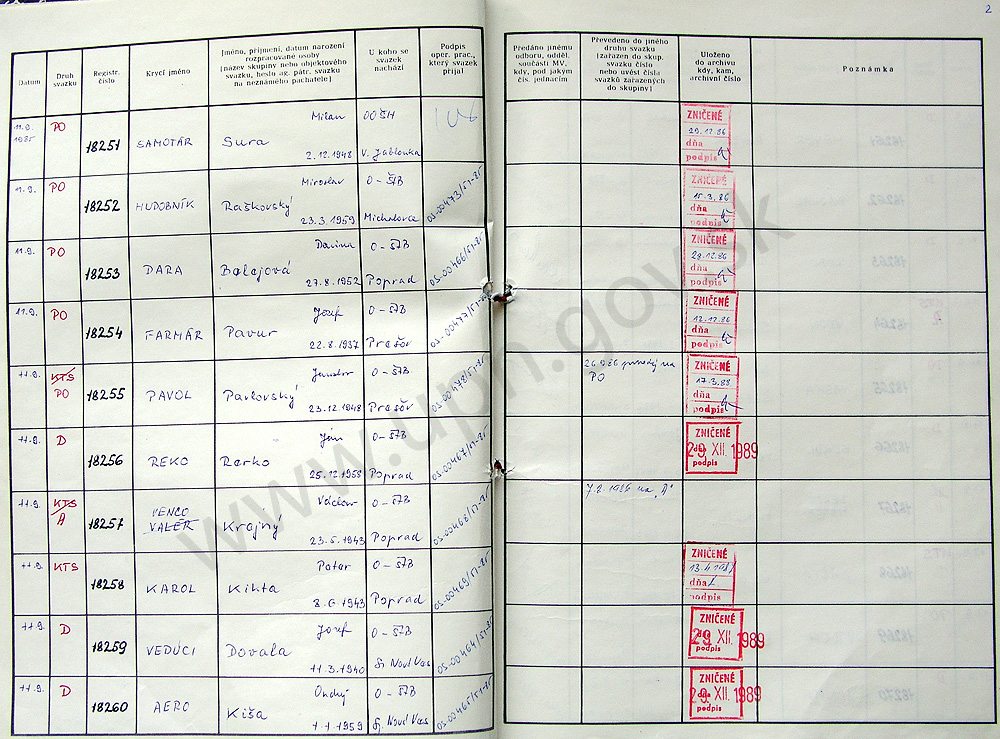 2
Datum
Druh svazku
Registr. číslo
Krycí jméno
Jméno, příjmení, datum narození rozpracované osoby [název skupiny nebo objektového svazku, heslo ag. pátr. svazku na neznámého pachatele]
U koho se svazek nachází
Podpis oper. prac., který svazek přijal
Předáno jinému odboru, odděl. součásti MV, kdy, pod jakým čís. jednacím
Převedeno do jiného druhu svazku [zařazen do skup. svazku číslo nebo uvést čísla svazků zařazených do skupiny]
Uloženo do archivu kdy, kam, archivní číslo
Poznámka
11.9. 1985 PO 18251 SAMOTÁR Milan Sura 2.12.1948 OOŠH V. Jablonka
ZNIČENÉ 29.12.86 dňa podpis
11.9. PO 18252 HUDOBNÍK Miroslav Raškovský 23.3.1959 O-ŠTB Michalovce OS-00473/51-85
ZNIČENÉ 15.3.86 dňa podpis
11.9. PO 18253 DARA Darina Balejová 27.8.1952 O-ŠTB Poprad OS-00466/51-85
ZNIČENÉ 29.12.86 dňa podpis
11.9. PO 18254 FARMÁR Jozef Pavur 22.8.1937 O-ŠTB Prešov OS-00477/51-85
ZNIČENÉ 12.12.86 dňa podpis
11.9. KTS PO 18255 PAVOL Pavlovský 23.12.1948 O-ŠTB Prešov OS-00478/51-85
PO
ZNIČENÉ 17.3.88 dňa podpis
11.9. D 18256 REKO Ján Rerko 25.12.1958 O-ŠTB Poprad OS-00467/51-85
ZNIČENÉ dňa 29. XII. 1989 podpis
11.9. KTS A 18257 VALÉR Krajný 23.5.1943 O-ŠTB Poprad OS-00468/51-85
7.2.1986 na "A"
11.9. KTS 18258 KAROL Peter Kihta 8.6.1943 O-ŠTB Poprad OS-00469/51-85
ZNIČENÉ dňa podpis
11.9. D 18259 VEDÚCI Jozef Dovala 11.3.1940 O-ŠTB Sp. Nová Ves OS-00464/51-85
ZNIČENÉ dňa 29. XII. 1989 podpis
11.9. D 18260 AERO Ondrej Kiša 1.1.1959 O-ŠTB Sp. Nová Ves OS-00465/51-85
ZNIČENÉ dňa 29. XII. 1989 podpis
www.upn.gov.sk